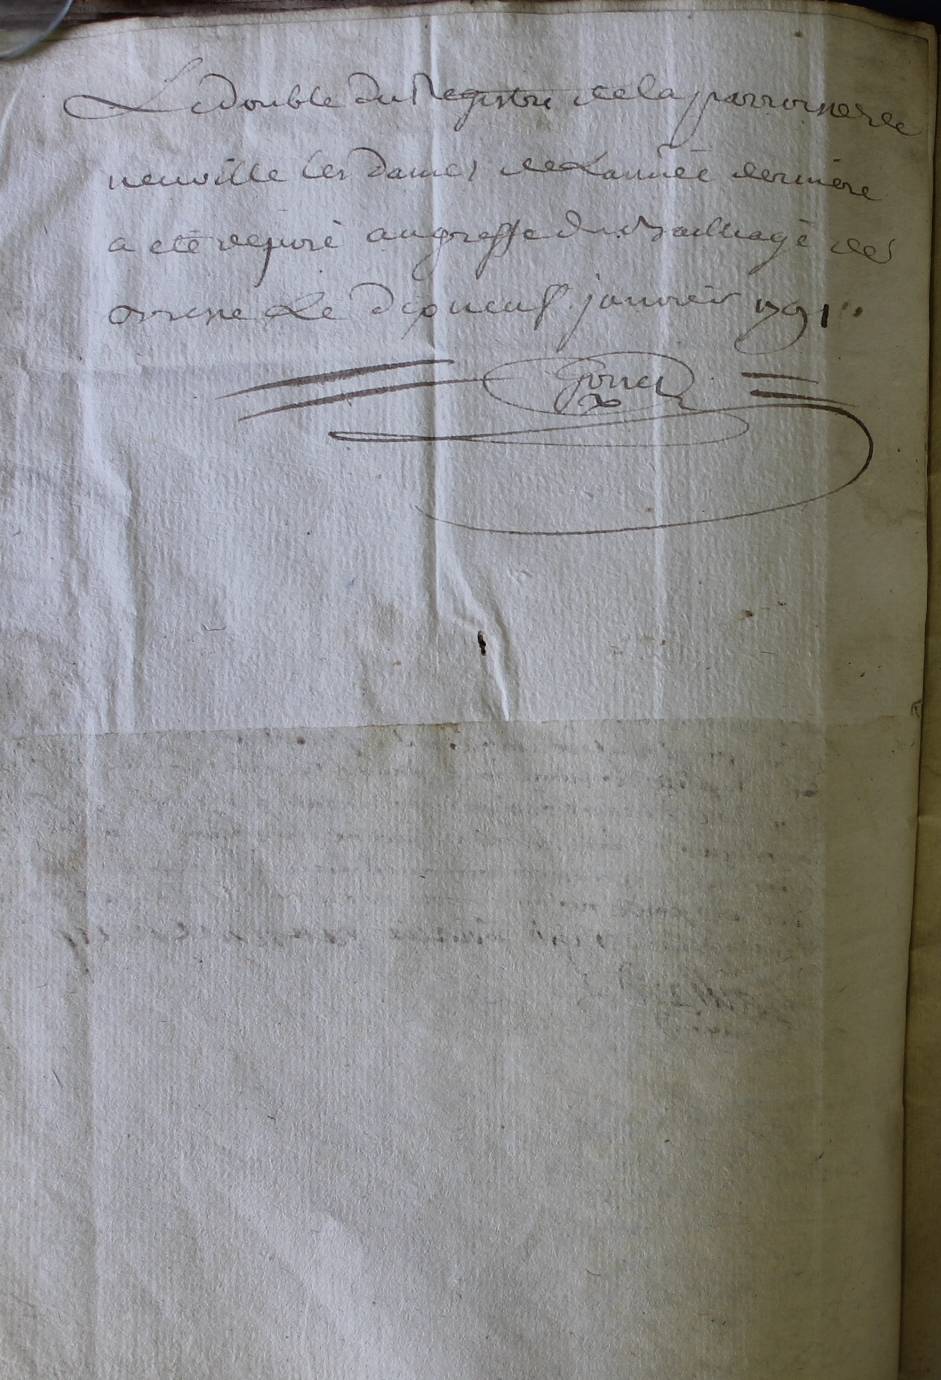 Le double du Registre de la parroisse de
neuville les dames de L'année derniere
a eté deposé au greffe du Bailliage de
Bresse Le dixneuf janvier 1791